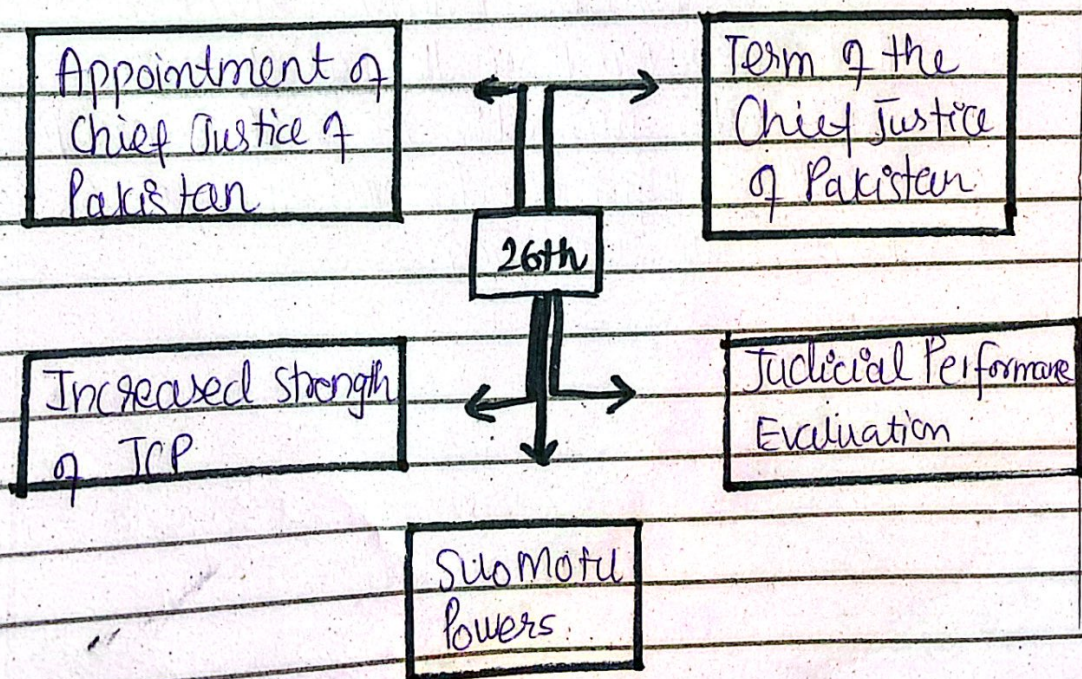 Appointment of
Chief Justice of
Pakistan
Term of the
Chief Justice
of Pakistan
26th
Increased strength
of JCP
Judicial Performance
Evaluation
Suo Motu
Powers